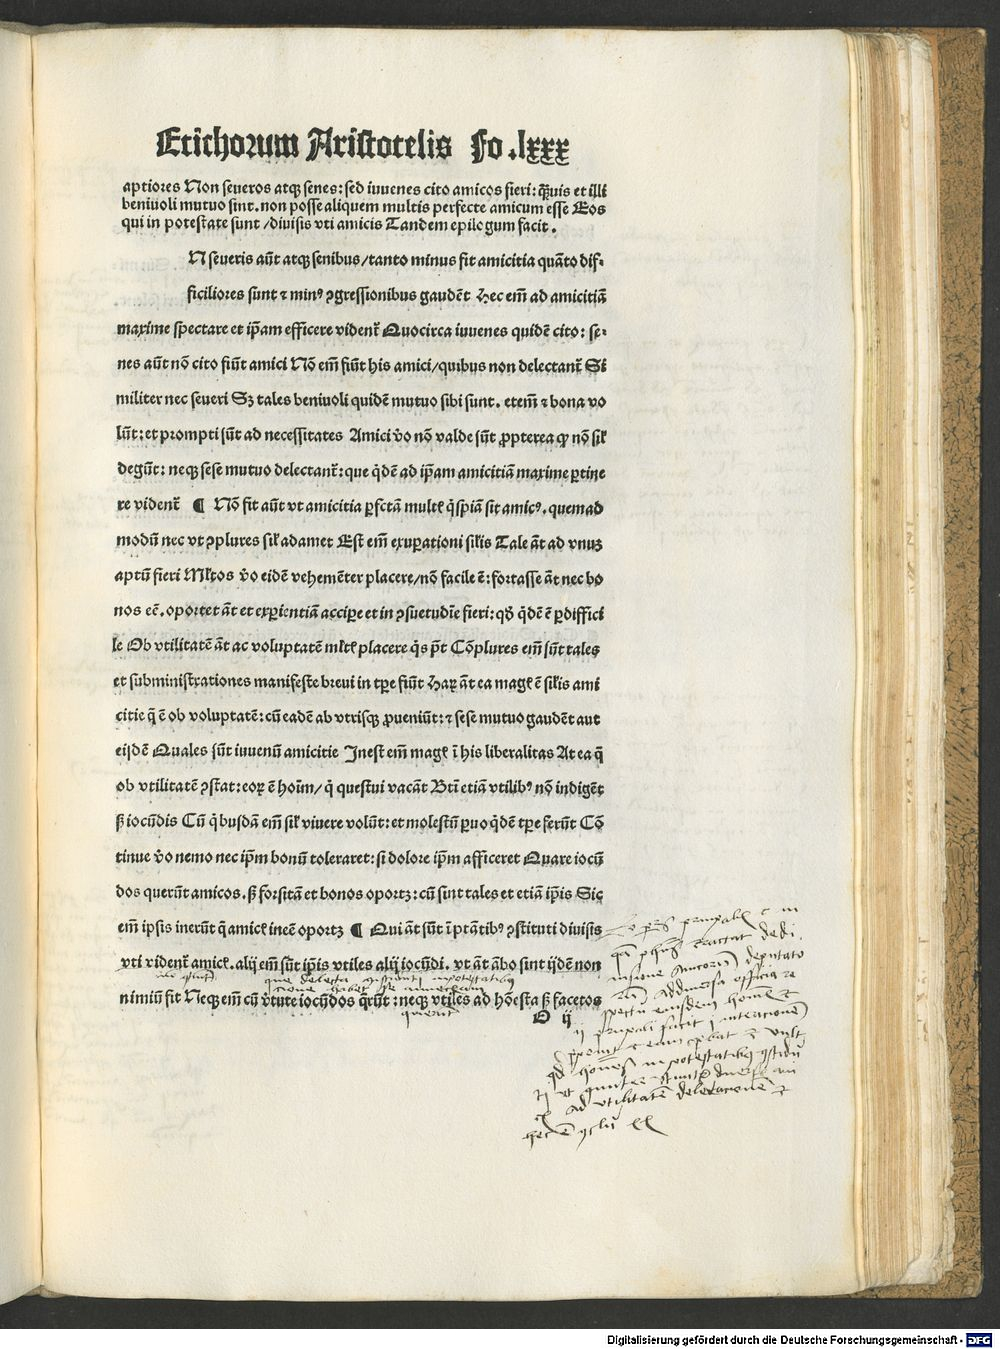 Etichorum Aristotelis fo .lxxx
aptiores Non seueros atqꝫ senes: sed iuuenes cito amicos fieri: q̄uis et illi
beniuoli mutuo sint. non posse aliquem multis perfecte amicum esse Eos
qui in potestate sunt / diuisis vti amicis Tandem epilogum facit.
N seueris aūt atqꝫ senibus/ tanto minus fit amicitia quāto dif-
ficiliores sunt ⁊ minꝰ ꝯgressionibus gaudēt Hec em̄ ad amicitiā
maxime spectare et ip̄am efficere vident᷑ Quocirca iuuenes quidē cito: se-
nes aūt nō cito fiūt amici Nō em̄ fiūt his amici/ quibus non delectant᷑ Si
militer nec seueri Sꝫ tales beniuoli quidē mutuo sibi sunt. etem̄ ⁊ bona vo
lūt: et prompti sūt ad necessitates Amici v̓o nō valde sūt ꝓpterea qꝫ nō sil̓
degūt: neqꝫ sese mutuo delectant᷑: que q̇dē ad ip̄am amicitiā maxime ꝑtine
re vident᷑ ¶ Nō fit aūt vt amicitia ꝑfctā multꝭ q̇spiā sit amicꝰ. quemad
modū nec vt ꝯplures sil̓ adamet Est em̄ exuꝑationi sil̓is Tale āt ad vnuꝫ
aptū fieri Ml̓tos v̓o eidē vehemēter placere/ nō facile ē: fortasse āt nec bo
nos eē. oportet āt et experientiā acciꝑe et in ꝯsuetudīe fieri: qd̓ q̇dē ē ꝑdiffici
le Ob vtilitatē āt ac voluptatē ml̓tꝭ placere q̇s p̄t Cōplures em̄ sūt tales
et subministrationes manifeste breui in tꝑe fiūt Haꝝ āt ea magꝭ ē sil̓is ami
citie q̄ ē ob voluptatē: cū eadē ab vtrisqꝫ ꝓueniūt: ⁊ sese mutuo gaudēt aut
eijdē Quales sūt iuuenū amicitie Inest em̄ magꝭ ī his liberalitas At ea q̄
ob vtilitatē ꝯstat: eoꝝ ē hoīm/ q̇ questui vacāt Bt̄i etiā vtilibꝰ nō indigēt
ꝭ iocūdis Cū q̇busdā em̄ sil̓ viuere volūt: et molestū ꝑuo q̇dē tꝑe ferūt Cō
tinue v̓o nemo nec ip̄m bonū toleraret: si dolore ip̄m afficeret Quare iocū
dos querūt amicos. ꝭ forsitā et bonos oportꝫ: cū sint tales et etiā ip̄is Sic
em̄ ipsis inerūt q̄ amicꝭ ineē oportꝫ ¶ Qui āt sūt ī ptātibꝰ ꝯstituti diuisis
vti vident᷑ amicꝭ. alij em̄ sūt ip̄is vtiles alij iocūdi. vt āt ābo sint ijdē non
que delecta
nimiū fit Neqꝫ em̄ cū v̓tute iocūdos q̄rūt: neqꝫ vtiles ad hōesta ꝭ facetos
querūt
O ij
tractat de di
uisione Amicorū deputato
rū Ad diuersa officia re
spectu eiusdem
ad vtilitatē delectationē ⁊
hec ē ꝯclu
Digitalisierung gefördert durch die Deutsche Forschungsgemeinschaft - DFG